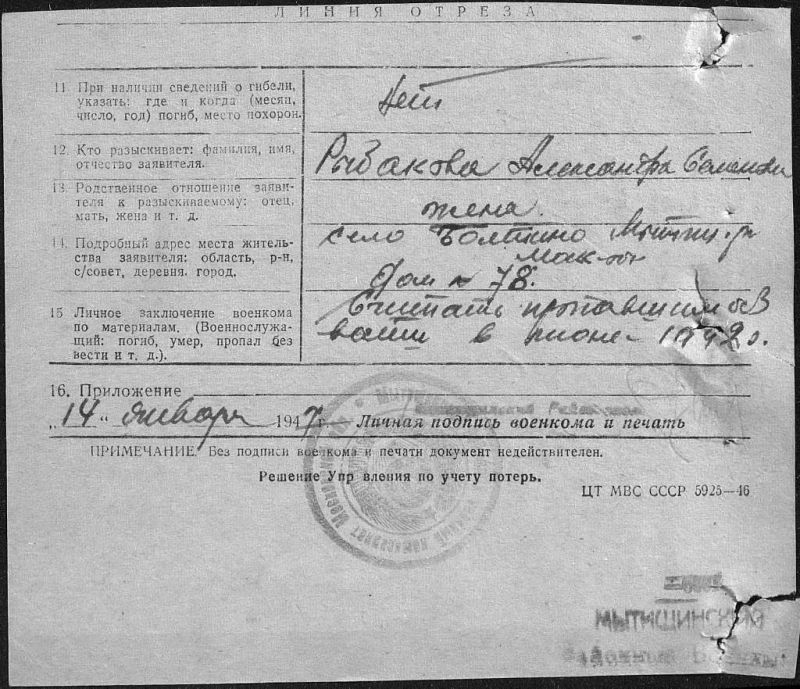 ЛИНИЯ ОТРЕЗА
11. При наличии сведений о гибели,
указать: где и когда (месяц,
число, год) погиб, место похорон.
Нет
12. Кто разыскивает: фамилия, имя,
отчество заявителя.
Рыбакова Александра
13. Родственное отношение заяви-
теля к разыскиваемому: отец,
мать, жена и т. д.
жена.
14. Подробный адрес места житель-
ства заявителя: область, р-н,
с/совет, деревня. город.
село Болтино
Дом № 78.
15 Личное заключение военкома
по материалам. (Военнослужа-
щий: погиб, умер, пропал без
вести и т. д.).
Считать пропавшим без
вести в июне 1942 г.
16. Приложение
„14“ января 1947 г. Личная подпись военкома и печать
ПРИМЕЧАНИЕ. Без подписи военкома и печати документ недействителен.
Решение Упр вления по учету потерь.
ЦТ МВС СССР 5925—46
МЫТИЩИНСКИЙ